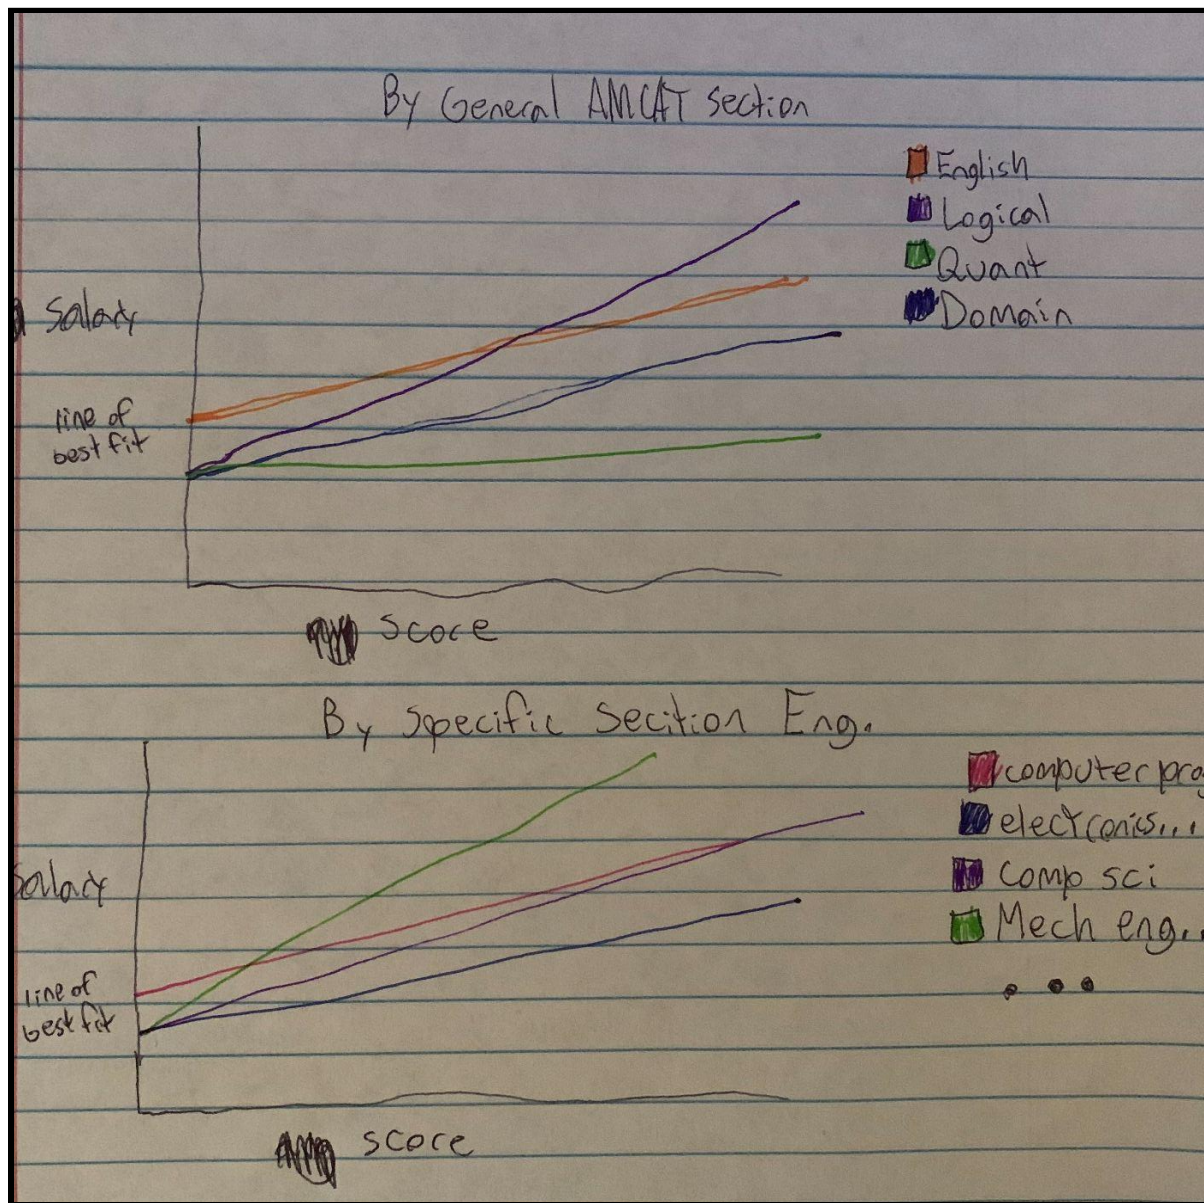 By General AMCAT section
English
Logical
Quant
Domain
Salary
line of
best fit
score
By Specific Secition Eng.
computer prog
electronics...
Comp sci
Mech eng..
Salary
line of
best fit
score